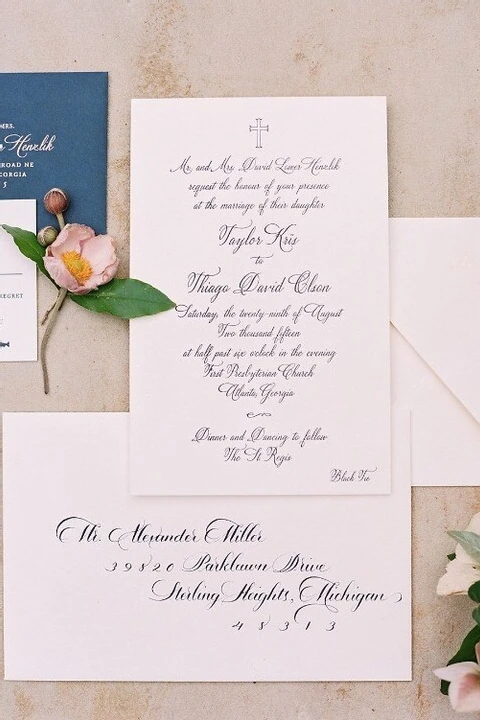 MRS.
Henzlik
ROAD NE
GEORGIA
5
REGRET
Mr. and Mrs. David Lover Henzlik
request the honour of your presence
at the marriage of their daughter
Taylor Kris
to
Thiago David Olson
Saturday, the twenty-ninth of August
Two thousand fifteen
at half past six o'clock in the evening
First Presbyterian Church
Atlanta, Georgia
Dinner and Dancing to follow
The St Regis
Black Tie
Mr. Alexander Miller
39820 Parklawn Drive
Sterling Heights, Michigan
48313